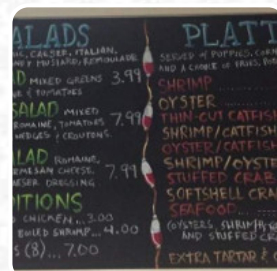 ALADS
CAESER, ITALIAN,
HONEY MUSTARD, REMOULADE
D MIXED GREENS 3.99
& TOMATOES
SALAD MIXED
ROMAINE, TOMATOES 7.99
WEDGES & CROUTONS.
LAD ROMAINE,
RMESAN CHEESE, 7.99
AESER DRESSING
ITIONS
CHICKEN...3.00
BOILED SHRIMP...4.00
S (8)...7.00
PLATT
SERVED W/ PUPPIES, CORN
AND A CHOICE OF FRIES,
SHRIMP
OYSTER
THIN-CUT CATFISH
SHRIMP/CATFISH
OYSTER/CATFISH
SHRIMP/OYSTE
STUFFED CRAB
SOFTSHELL CRA
SEAFOOD
(OYSTERS, SHRIMP,
AND STUFFED CR
EXTRA TARTAR &